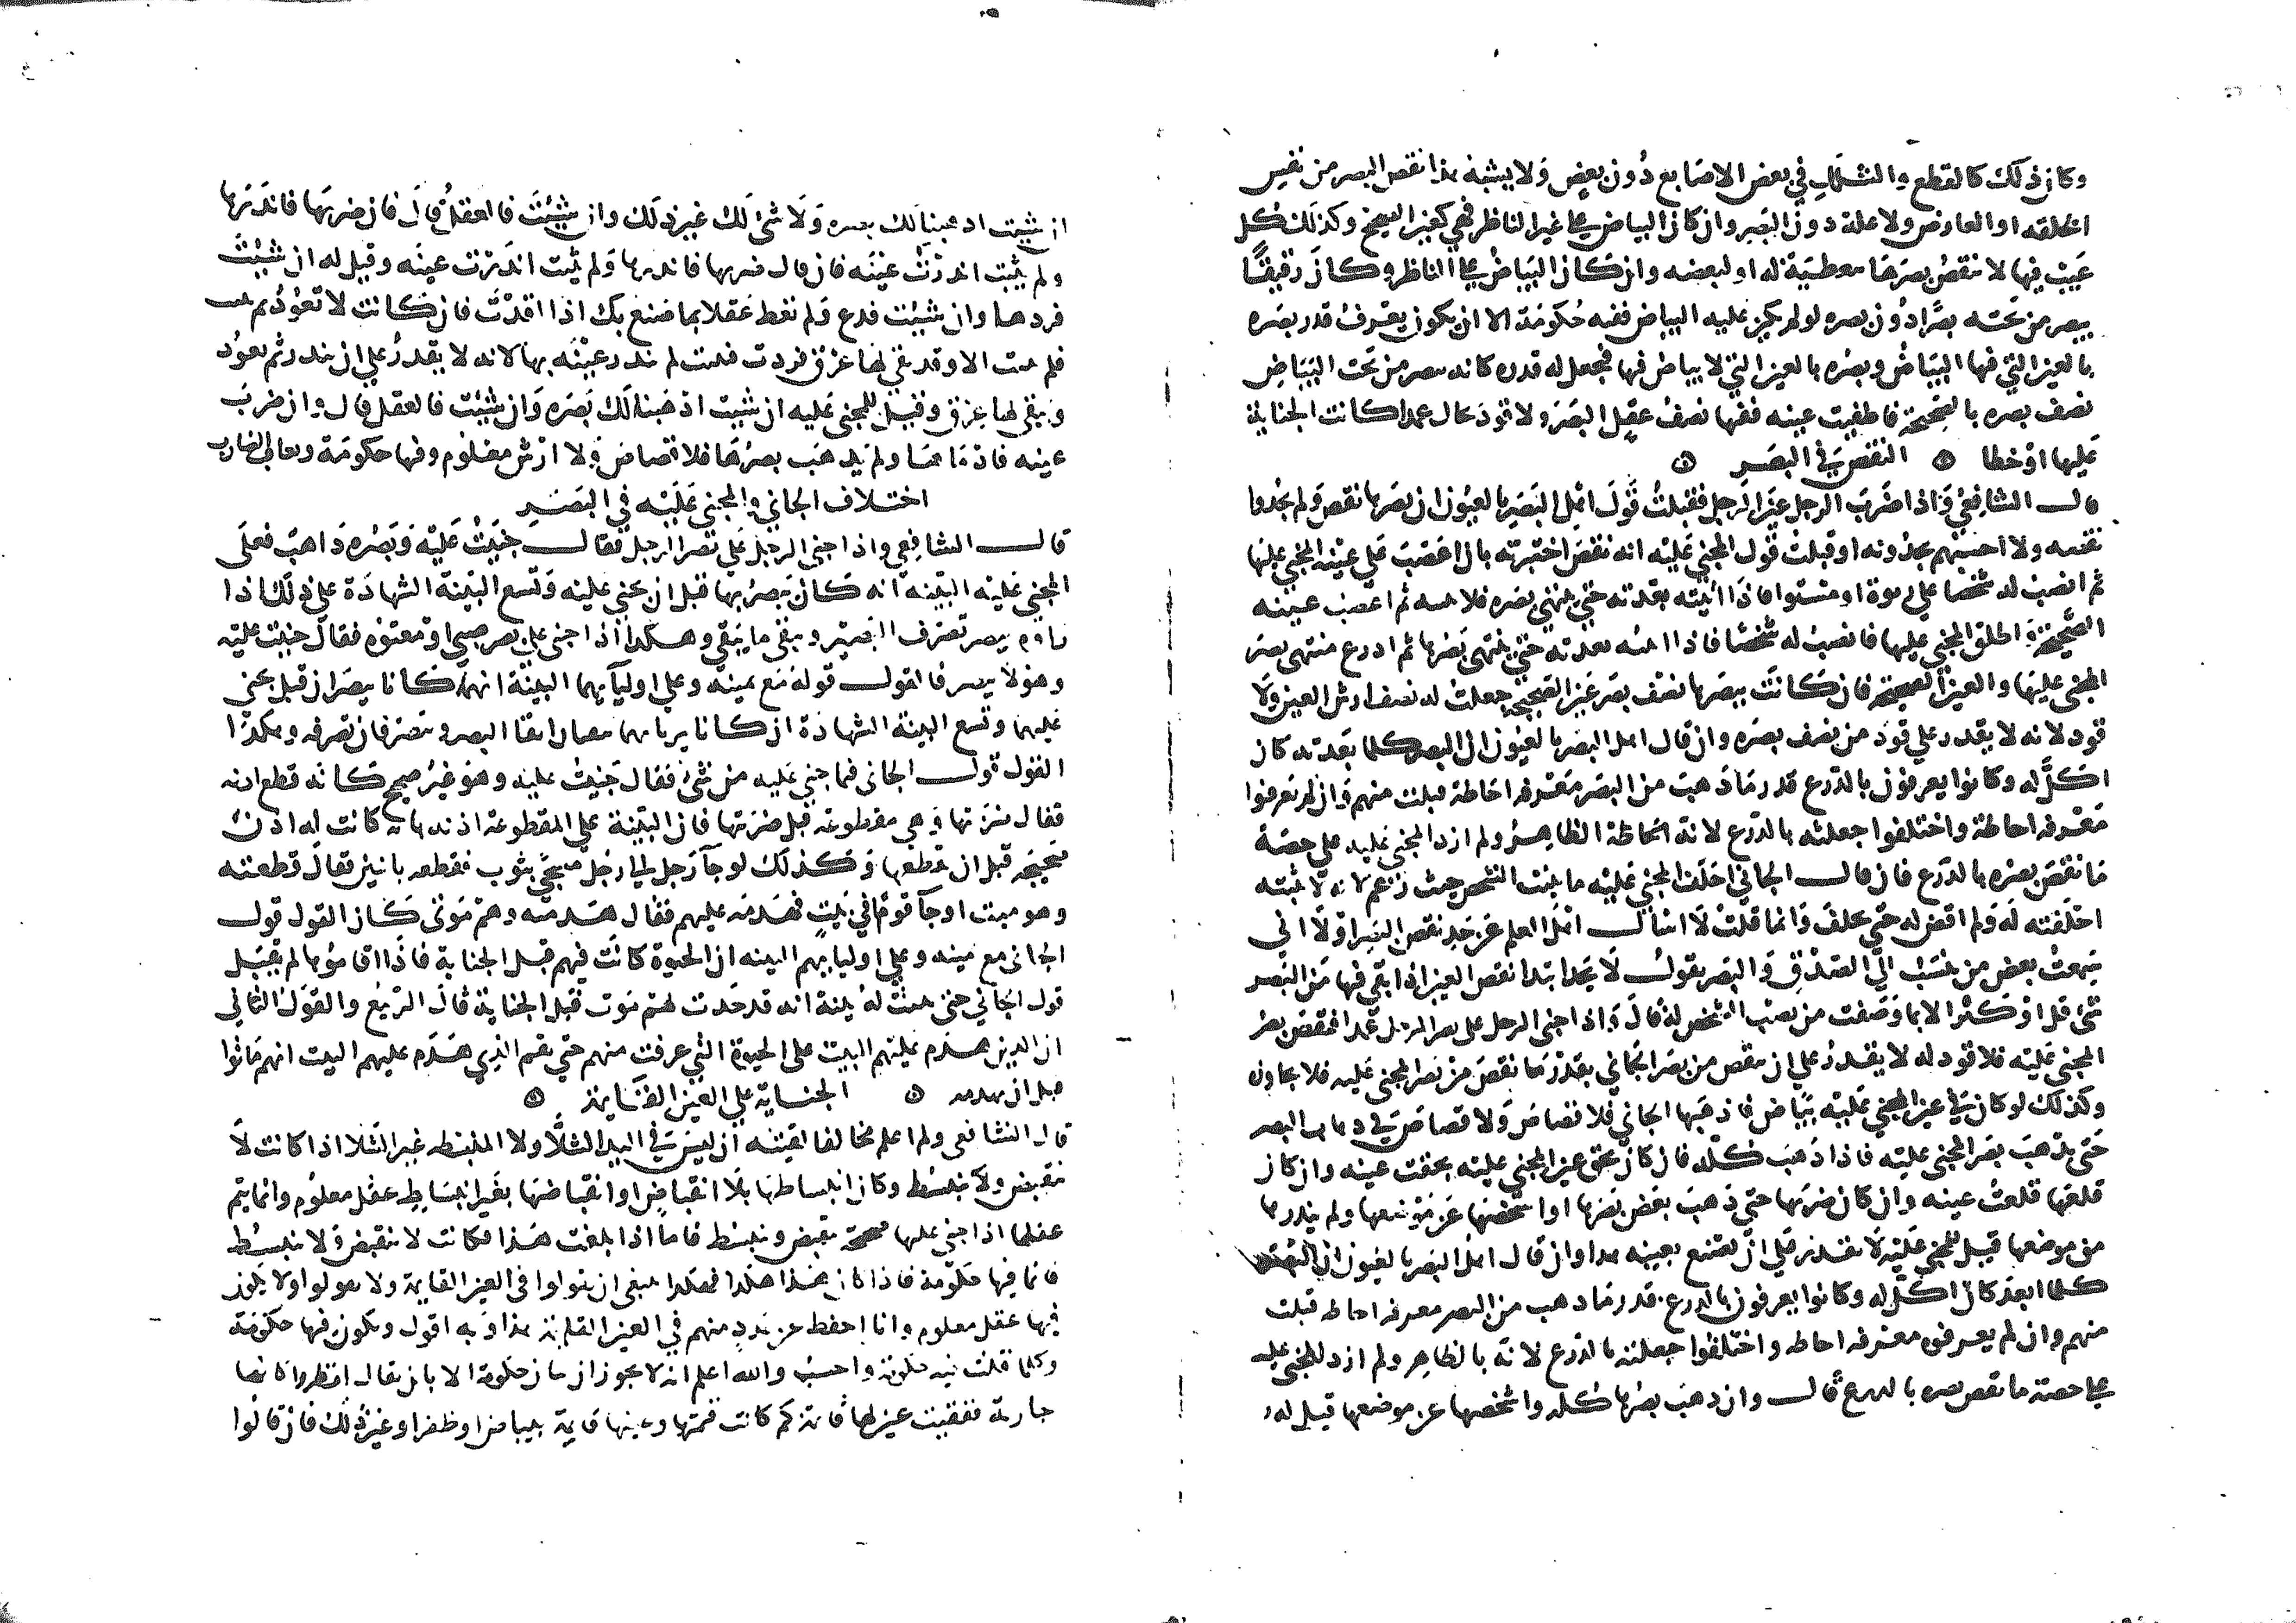 وكان ذلك كالقطع والشلل في بعض الاصابع دون بعض ولا يشبه هذا نقص البصر من نفس
الخلقة او العارض ولا علة دون البصر وان كان البياض على غير الناظر فهي كعين الصحيح وكذلك كل
عيب فيها لا ينقص بصرها بتغطية له او لبعضه وان كان البياض على الناظر وكان رقيقا
يبصر من تحته بصرا دون بصره لو لم يكن عليه البياض ففيه حكومة الا ان يكون يعرف قدر بصره
بالعين التي فيها البياض وبصره بالعين التي لا بياض فيها فيجعل له قدره كانه يبصر من تحت البياض
نصف بصره بالصحيحة فاطفيت عينه ففيها نصف عقل البصر ولا قود بحال عمدا كانت الجناية
عليها او خطا النقص في البصر
قال الشافعي واذا ضرب الرجل عين الرجل فقبلت قول اهل البصر بالعيون ان بصرها نقص ولم يحدوا
نقصه ولا احسبهم يحدونه او قبلت قول المجني عليه انه نقص اختبرته بان اعصب على عينه المجني عليها
ثم انصب له شخصا على ربوة او مستوا فاذا اثبته بعدته حتى ينتهي بصره فلا يثبته ثم اعصب عينه
الصحيحة واطلق المجني عليها فانصب له شخصا فاذا اثبته بعدته حتى ينتهي بصرها ثم اذرع منتهى بصر
المجني عليها والعين الصحيحة فان كانت يبصر بها نصف بصر عين الصحيحة جعلت له نصف ارش العين ولا
قود لانه لا يقدر على قود من نصف بصره وان قال اهل البصر بالعيون ان البصر كلما بعدته كان
اكل له وكانوا يعرفون بالذرع قدر ما ذهب من البصر معرفة احاطة قبلت منهم وان لم يعرفوا
معرفة احاطة واختلفوا جعلته بالذرع لانه احاطة الظاهر ولم ازد المجني عليه على حصة
ما نقص بصره بالذرع فان قال الجاني احلف المجني عليه ما يثبت الشخص حيث زعم لانه لا يثبته
احلفته له ولم اقض له حتى يحلف وانما قلت لا اسال اهل العلم عن حد نقص البصر اولا اني
سمعت بعض من ينسب الى الصدق والبصر يقول لا يحد ابدا نقص العين اذا بقي فيها من البصر
شي قل او كثر الا بما وصفت من نصب الشخص له قال واذا جنى الرجل على بصر الرجل عمدا فنقص بصر
المجني عليه فلا قود له لا يقدر على ان ينقص من بصر الجاني بقدر ما نقص من بصر المجني عليه فلا يجاوزه
وكذلك لو كان في عين المجني عليه بياض فاذهبها الجاني فلا قصاص ولا قصاص في ذهاب البصر
حتى يذهب بصر المجني عليه فاذا ذهب كله فان كان بخق عين المجني عليه بخقت عينه وان كان
قلعها قلعت عينه وان كان ضربها حتى ذهب بعض بصرها او اشخصها عن موضعها ولم يندرها
من موضعها قيل للمجني عليه لا نقدر على ان نصنع بعينه هذا وان قال اهل البصر بالعيون ان البصر
كلما ابعد كان اكل له وكانوا يعرفون بالذرع قدر ما ذهب من البصر معرفة احاطة قبلت
منهم وان لم يعرفوه معرفة احاطة واختلفوا جعلته بالذرع لانه بالظاهر ولم ازد للمجني عليه
على حصة ما نقص بصره بالذرع قال وان ذهب بصرها كله واشخصها عن موضعها قيل له
ان شيت اذهبنا لك بصره ولا شي لك غير ذلك وان شيت فالعقل قال فان ضربها فاندرها
ولم تثبت اندرت عينه فان قال ضربها فاندرها ولم تثبت اندرت عينه وقيل له ان شيت
فردها وان شيت فدع ولم نعط عقلا بما صنع بك اذا اقدت فان كانت لا تعود ثم
فلم تثبت الا وقد بقي لها عرق فردت فثبتت لم تندر عينه بها لانه لا يقدر على ان تندر ثم تعود
ويبقى لها عرق وقيل للمجني عليه ان شيت اذهبنا لك بصره وان شيت فالعقل قال وان ضرب
عينه فادماها ولم يذهب بصرها فلا قصاص ولا ارش معلوم وفيها حكومة ويعاقب الضارب
اختلاف الجاني والمجني عليه في البصر
قال الشافعي واذا جنى الرجل على بصر الرجل فقال جنيت عليه وبصره ذاهب فعلى
المجني عليه البينة انه كان يبصر بها قبل ان يجني عليه وتسع البينة الشهادة على ذلك اذا
راوه يبصر تصرف البصير ويتقى ما يتقي وهكذا اذا جنى على بصر صبي او معتوه فقال جنيت عليه
وهو لا يبصر فالقول قوله مع يمينه وعلى اوليايهما البينة انهما كانا يبصران قبل يجني
عليهما وتسع البينة الشهادة ان كانا يريانهما يتقيان اتقا البصر ويتصرفان تصرفه وهكذا
القول قول الجاني فيما جنى عليه من شي فقال جنيت عليه وهو غير صحيح كانه قطع اذنه
فقال ضربتها وهي مقطوعة قبل ضربتها فان البينة على المقطوعة اذنه بانه كانت له اذن
صحيحة قبل ان يقطعها وكذلك لو جا رجل الى رجل مسجى بثوب فقطعه باثنين فقال قطعته
وهو ميت او جا قوما في بيت فهدمه عليهم فقال هدمته وهم موتى كان القول قول
الجاني مع يمينه وعلى اوليايهم البينة ان الحيوة كانت فيهم قبل الجناية فاذا اقاموها لم يقبل
قول الجاني حتى يثبت له بينة انه قد حدث لهم موت قبل الجناية قال الربيع والقول الثاني
ان الذين هدم عليهم البيت على الحيوة التي عرفت منهم حتى يقيم الذي هدم عليهم البيت انهم ماتوا
قبل ان يهدمه الجناية على العين القايمة
قال الشافعي ولم اعلم مخالفا لقيته ان ليس في اليد الشلا ولا المنبسطة غير الشلا اذا كانت لا
تنقبض ولا تنبسط وكان انبساطها بلا انقباض او انقباضها بغير انبساط عقل معلوم وانما يتم
عقلها اذا جنى عليها صحيحة تنقبض وتنبسط فاما اذا بلغت هذا فكانت لا تنقبض ولا تنبسط
فانما فيها حكومة فاذا كان هذا هكذا فهكذا ينبغي ان يقولوا في العين القايمة ولا يقولوا ولا يكون
فيها عقل معلوم وانا احفظ عن عدد منهم في العين القايمة هذا وبه اقول ويكون فيها حكومة
وكلما قلت فيه حكومة واحسب والله اعلم انه لا يجوز ان يكون حكومة الا بان يقال انظروا كانها
جارية ففقيت عين لها قايمة كم كانت قيمتها وعينها قايمة ببياض او ظفر او غير ذلك فان قالوا